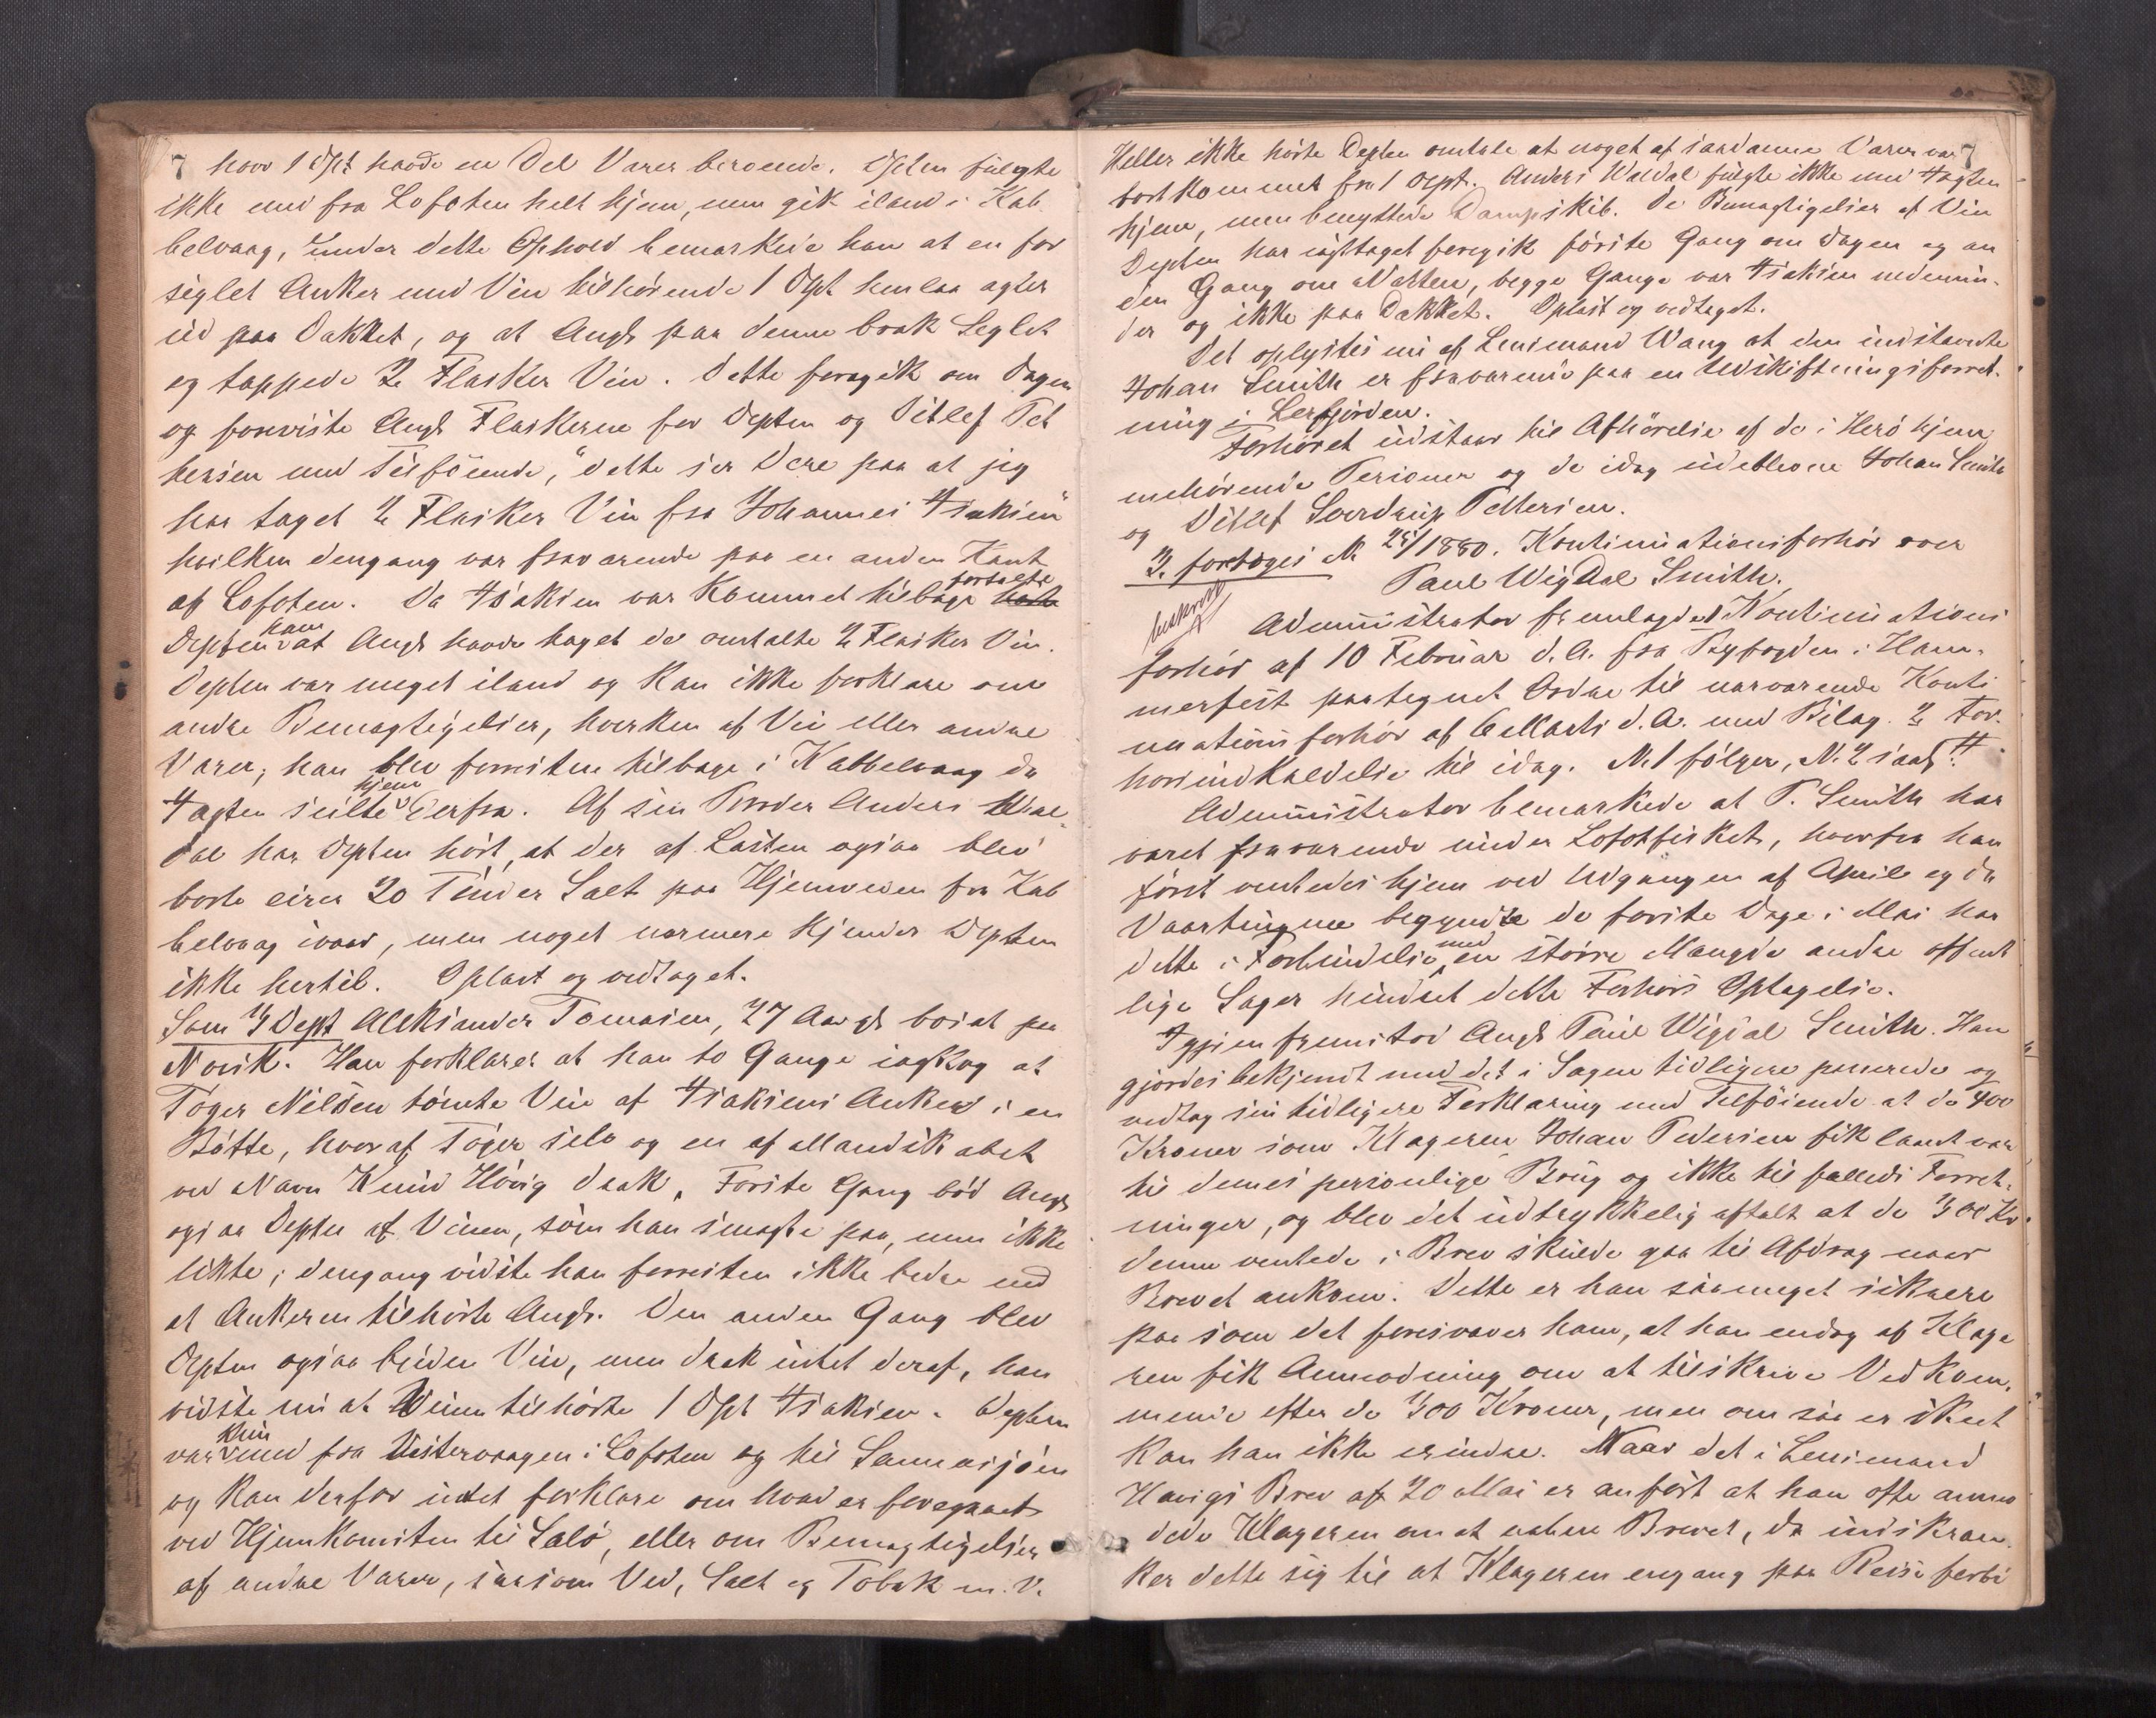 7 hvor 1 Dpt havde en Del Varer beroende. Dpten fulgte
ikke med fra Lofoten helt hjem, men gik iland i Kab
belvaag, under dette Ophold bemærkede han at en for
seglet Anker med Vin tilhørende 1 Dpt henlaa agter
ud paa Dækket, og at Angh paa denne brak Seglet
og tappede 2 Flasker Vin. Dette foregik om Dagen
og foreviste Angh Flaskerne for Depten og Ditlef Pet
tersen med Tilføiende, "dette ser Dere paa at jeg
har taget 2 Flasker Vin fra Johannes Isaksen"
hvilken dengang var fraværende paa en anden Kant
af Lofoten. Da Isaksen var kommet tilbage fortalte
Depten ham at Angh havde taget de omtalte 2 Flasker Vin.
Depten var meget iland og kan ikke forklare om
andre Bemægtigelser, hverken af Vin eller andre
Varer; han blev forresten tilbage i Kabbelvaag da
Jagten seilte hjem derfra. Af sin Broder Anders Wal
dal har Depten hørt, at der af Lasten ogsaa blev
borte circa 20 Tønder Salt paa Hjemveien fra Kab
belvaag ivaar, men noget nærmere kjender Depten
ikke hertil. Oplæst og vedtaget.
Som 4 Dept Aleksander Tomasen, 27 Aar gl. bosat paa
Novik. Han forklarer at han to Gange iagttog at
Tøger Nilsen tømte Vin af Isaksens Anker i en
Bøtte, hvoraf Tøger selv og en af Mandskabet
ved Navn Knud Høvig drak. Første Gang bød Angh
ogsaa Depten af Vinen, som han smagte paa, men ikke
likte; dengang vidste han forresten ikke bedre end
at Ankeren tilhørte Angh. Den anden Gang blev
Depten ogsaa buden Vin, men drak intet deraf, han
vidste nu at Vinen tilhørte 1 Dpt Isaksen. Depten
var kun med fra Østervaagen i Lofoten og til Sannasjøen
og kan derfor intet forklare om hvad er foregaaet
ved Hjemkomsten til Salø, eller om Bemægtigelser
af andre Varer, saasom Ved, Salt og Tobak m. V.
Heller ikke hørte Depten omtale at noget af saadanne Varer var 7
bortkommet fra 1 Dept. Anders Waldal fulgte ikke med Jagten
hjem, men benyttede Dampskib. De Bemægtigelser af Vin
Depten har iagttaget foregik første Gang om Dagen og an
den Gang om Natten, begge Gange var Isaksen nedenun-
der og ikke paa Dækket. Oplæst og vedtaget.
Det oplystes nu af Lensmand Wang at den indstævnte
Johan Smith er fraværende paa en Udskiftningsforret-
ning i Leirfjorden.
Forhøret udstaar til Afhørelse af de i Herø hjem
mehørende Personer og de idag udeblevne Johan Smith
og Ditlef Sverdrup Pettersen.
3. foretoges N 25/1880. Kontinuationsforhør over
Paul Wigdal Smith.
beskrevet
Administrator fremlagde 1 Kontinuations
forhør af 10 Februar d. A. fra Byfogden i Ham-
merfest paategnet Ordre til nærværende Konti
nuationsforhør af 6 Marts d. A. med Bilag. 2 For-
hørsindkaldelse til idag. N. 1 følger, N. 2 saal.
Administrator bemærkede at P. Smith har
været fraværende under Lofotfisket, hvorfra han
først ventedes hjem ved Udgangen af April og da
Vaartingene begyndte de første Dage i Mai har
dette i Forbindelse med en større Mængde andre offent
lige Sager hindret dette Forhørs Optagelse.
Igjen fremstod Angh Paul Wigdal Smith. Han
gjordes bekjendt med det i Sagen tidligere passerede og
vedtog sin tidligere Forklaring med Tilføiende at de 400
Kroner som Klageren Johan Pedersen fik laant var
til dennes personlige Brug og ikke til fælleds Forret-
ninger, og blev det udtrykkelig aftalt at de 400 Kr
denne ventede i Brev skulde gaa til Afdrag naar
Brevet ankom. Dette er han saameget sikrere
paa som det foresvæver ham, at han endog af Klage
ren fik Anmodning om at tilskrive Vedkom-
mende efter de 400 Kroner, men om saa er skeet
kan han ikke erindre. Naar det i Lensmand
Havigs Brev af 20 Mai er anført at han ofte anmo
dede Klageren om at aabne Brevet, da indskræn-
ker dette sig til at Klageren engang paa Reise forbi